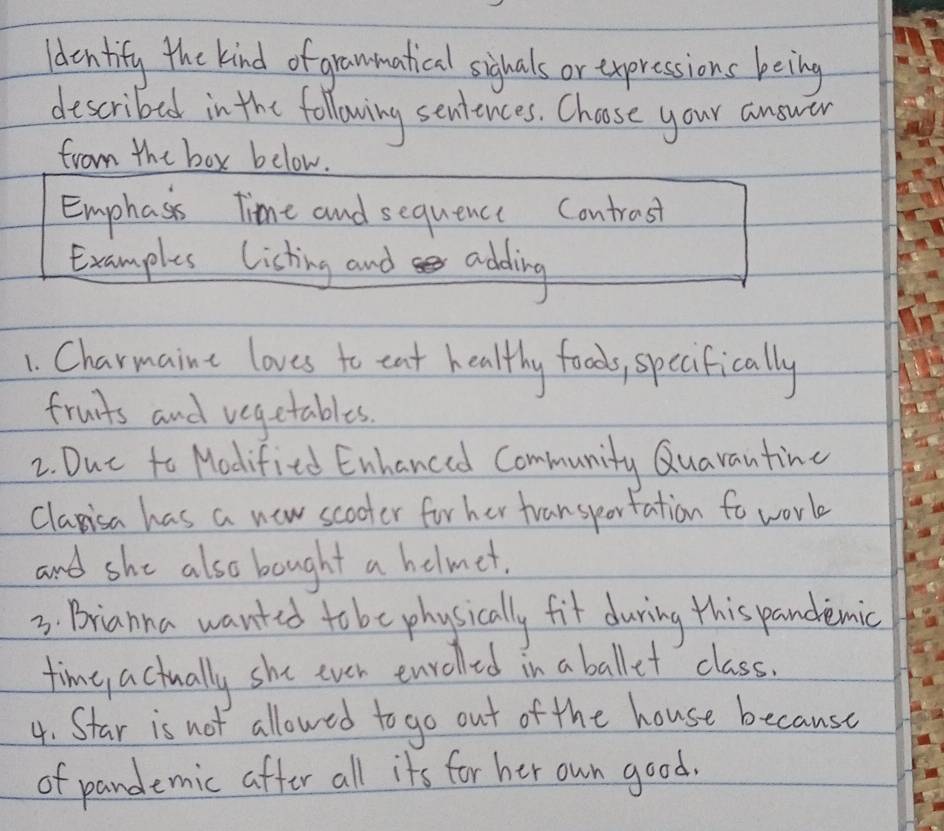 Identify the kind of grammatical signals or expressions being
described in the following sentences. Choose your answer
from the box below.
Emphasis Time and sequence Contrast
Examples Listing and adding
1. Charmaine loves to eat healthy foods, specifically
fruits and vegetables.
2. Due to Modified Enhanced Community Quarantine
Clarisa has a new scooter for her transportation to work
and she also bought a helmet.
3. Brianna wanted to be physically fit during this pandemic
time, actually she even enrolled in a ballet class.
4. Star is not allowed to go out of the house because
of pandemic after all its for her own good.